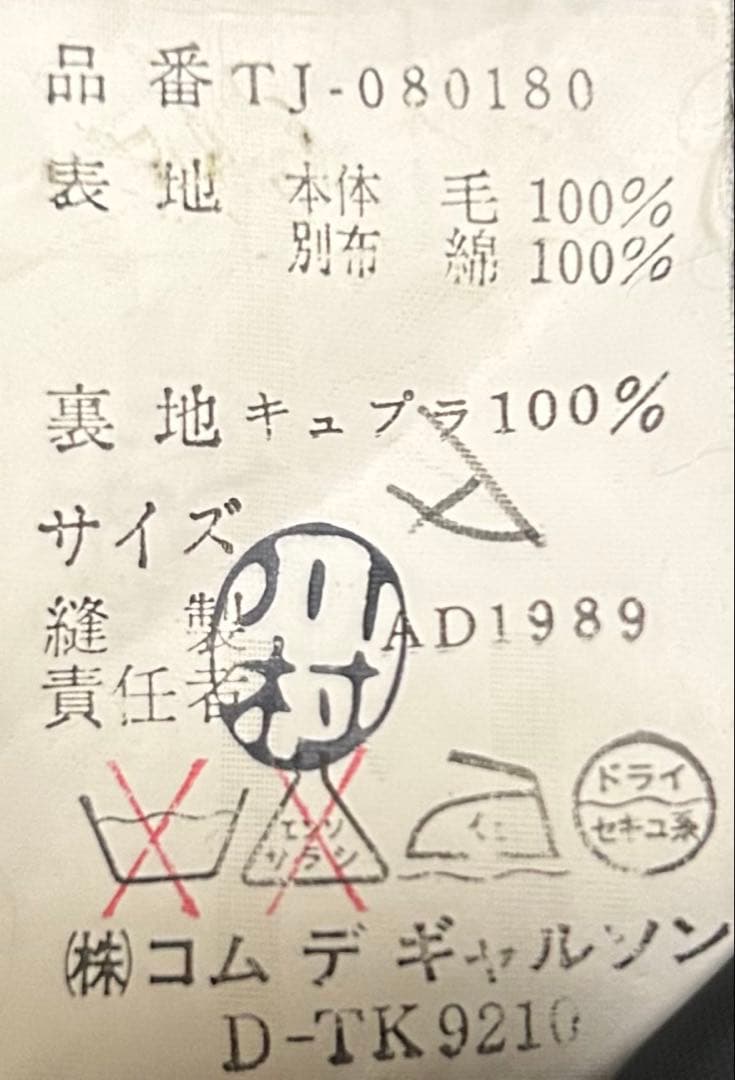 品番 TJ-080180
表地 本体 毛 100%
別布 綿 100%
裏地 キュプラ 100%
サイズ
縫製 AD1989
責任者
川村
エンソ
サラシ
ドライ
セキユ系
㈱コムデギャルソン
D-TK9210